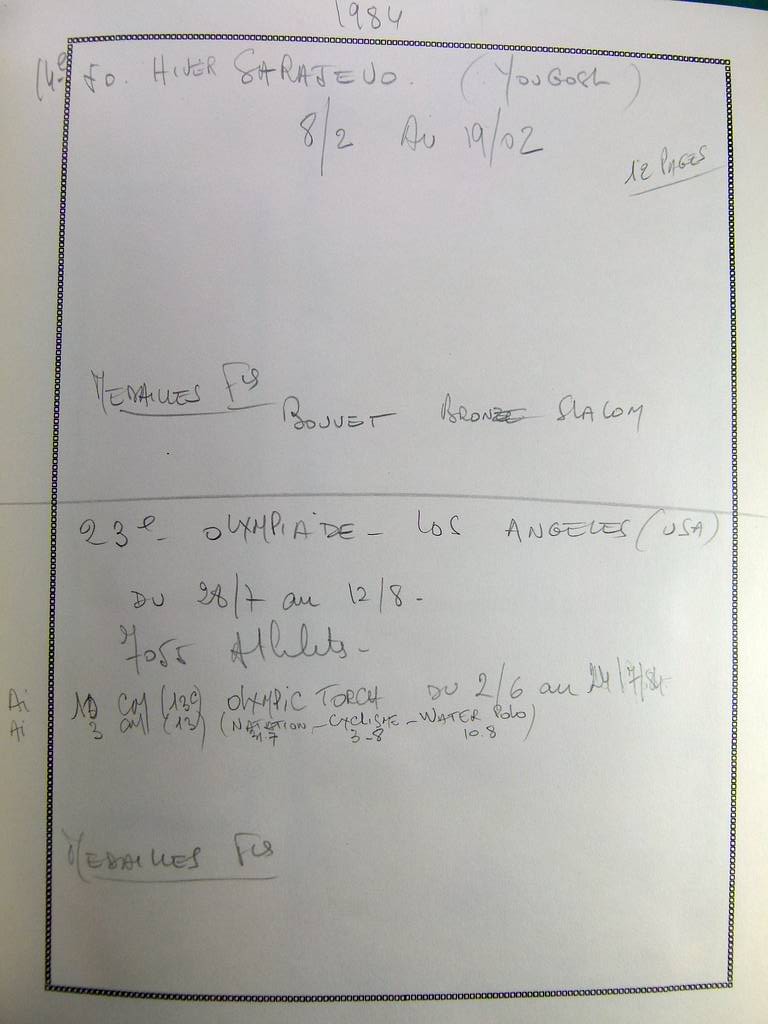 1984
14e JO. HIVER SARAJEVO. (YOUGOSL)
8/2 AU 19/02
12 PAGES
MEDAILLES Fses
BOUVET BRONZE SLALOM
23e - OLYMPIADE - LOS ANGELES (USA)
DU 28/7 au 12/8 -
7055 Athlets -
Ai CM (13c) OLYMPIC TORCH DU 2/6 au /7/84
Ai 3 CM (13) (NATATION - CYCLISME - WATER POLO)
31.7 3-8 10.8
MEDAILLES Fses